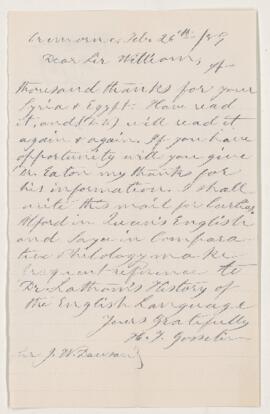 Cremorne, Feb. 26th /89
Dear Sir William,
A
thousand thanks for your
Syria & Egypt. Have read
it, and (D.V.) will read it
again & again. If you have
opportunity will you give
Dr. Eaton my thanks for
his information. I shall
write this mail for
Alford in Queen's English
and Sayce in Compara-
tive Philology make
frequent reference to
Dr. Latham's History of
the English Language
Yours Gratefully
H. F. Gosselin
Sir J. W. Dawson